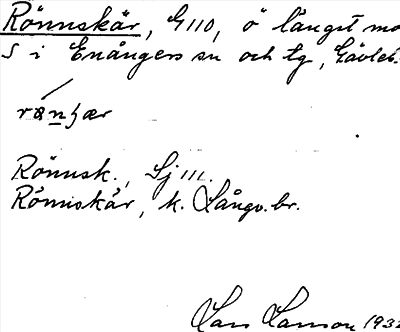 Rönnskär, G110, ö längst mo
S i Enångers sn och tg, Gävleb.

Rönnsk., Sj 111.
Rönnskär, k. Långv. br.
Lars Larsson 1932